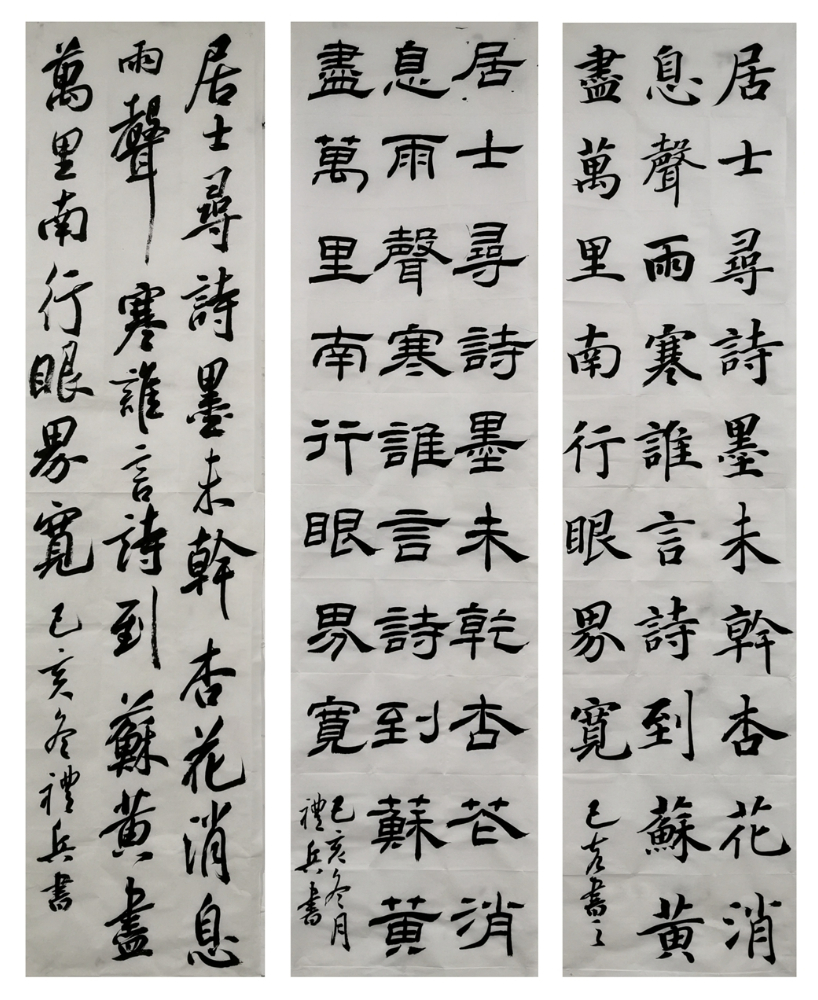 居士尋詩墨未幹杏花消
息聲雨寒誰言詩到蘇黃
盡萬里南行眼界寬
己亥書之
居士尋詩墨未乾杏花消
息雨聲寒誰言詩到蘇黃
盡萬里南行眼界寬
己亥冬月
禮兵書
居士尋詩墨未幹杏花消息
雨聲寒誰言詩到蘇黃盡
萬里南行眼界寬
己亥冬禮兵書